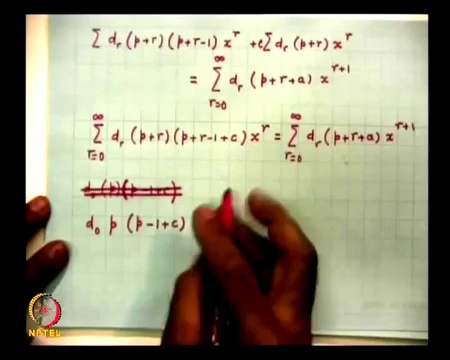 Σ d_r (p+r) (p+r-1) x^r + c Σ d_r (p+r) x^r
= Σ_{r=0}^{∞} d_r (p+r+a) x^{r+1}
Σ_{r=0}^{∞} d_r (p+r) (p+r-1+c) x^r = Σ_{r=0}^{∞} d_r (p+r+a) x^{r+1}
d_0 p (p-1+c)
NPTEL